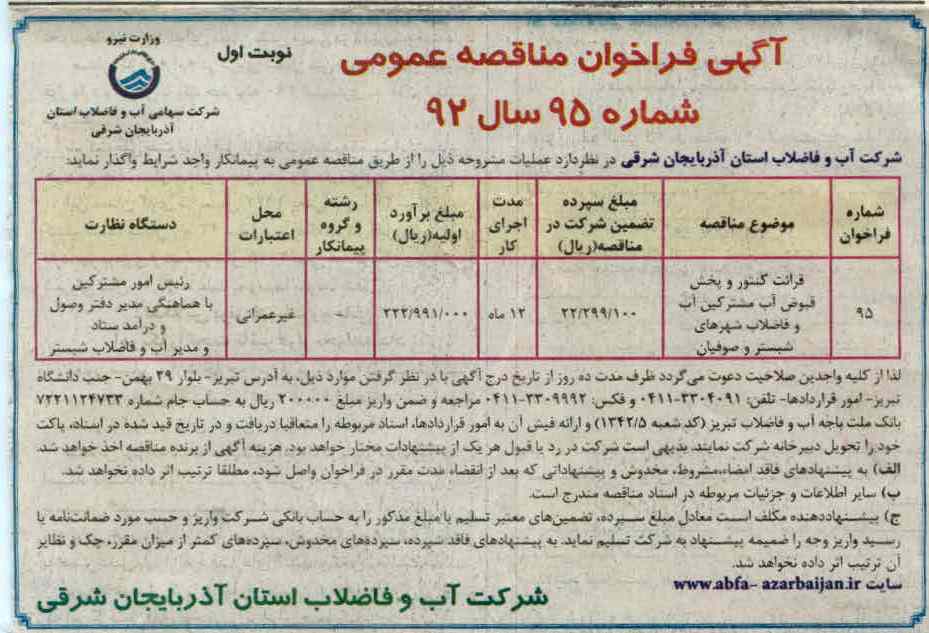 آگهی فراخوان مناقصه عمومی
شماره ۹۵ سال ۹۲
نوبت اول
وزارت نیرو
شرکت سهامی آب و فاضلاب استان
آذربایجان شرقی
شرکت آب و فاضلاب استان آذربایجان شرقی در نظردارد عملیات مشروحه ذیل را از طریق مناقصه عمومی به پیمانکار واجد شرایط واگذار نماید:
شماره فراخوان
موضوع مناقصه
مبلغ سپرده تضمین شرکت در مناقصه(ریال)
مدت اجرای کار
مبلغ برآورد اولیه(ریال)
رشته و گروه پیمانکار
محل اعتبارات
دستگاه نظارت
۹۵
قرائت کنتور و پخش
قبوض آب مشترکین آب
و فاضلاب شهرهای
شبستر و صوفیان
۲۲/۲۹۹/۱۰۰
۱۲ ماه
۲۲۲/۹۹۱/۰۰۰
غیرعمرانی
رئیس امور مشترکین
با هماهنگی مدیر دفتر وصول
و درآمد ستاد
و مدیر آب و فاضلاب شبستر
لذا از کلیه واجدین صلاحیت دعوت می‌گردد ظرف مدت ده روز از تاریخ درج آگهی با در نظر گرفتن موارد ذیل، به آدرس تبریز- بلوار ۲۹ بهمن- جنب دانشگاه
تبریز- امور قراردادها- تلفن: ۳۳۰۴۰۹۱-۰۴۱۱ و فکس: ۳۳۰۹۹۹۲-۰۴۱۱ مراجعه و ضمن واریز مبلغ ۲۰۰۰۰۰ ریال به حساب جام شماره ۷۲۲۱۱۲۴۷۳۳
بانک ملت باجه آب و فاضلاب تبریز (کد شعبه ۱۳۴۲/۵) و ارائه فیش آن به امور قراردادها، اسناد مربوطه را متعاقبا دریافت و در تاریخ قید شده در اسناد، پاکت
خود را تحویل دبیرخانه شرکت نمایند. بدیهی است شرکت در رد یا قبول هر یک از پیشنهادات مختار خواهد بود. هزینه آگهی از برنده مناقصه اخذ خواهد شد.
الف) به پیشنهادهای فاقد امضاء، مشروط، مخدوش و پیشنهاداتی که بعد از انقضاء مدت مقرر در فراخوان واصل شود، مطلقا ترتیب اثر داده نخواهد شد.
ب) سایر اطلاعات و جزئیات مربوطه در اسناد مناقصه مندرج است.
ج) پیشنهاددهنده مکلف است معادل مبلغ سپرده، تضمین‌های معتبر تسلیم یا مبلغ مذکور را به حساب بانکی شرکت واریز و حسب مورد ضمانت‌نامه یا
رسید واریز وجه را ضمیمه پیشنهاد به شرکت تسلیم نماید. به پیشنهادهای فاقد سپرده، سپرده‌های مخدوش، سپرده‌های کمتر از میزان مقرر، چک و نظایر
آن ترتیب اثر داده نخواهد شد.
سایت www.abfa- azarbaijan.ir
شرکت آب و فاضلاب استان آذربایجان شرقی